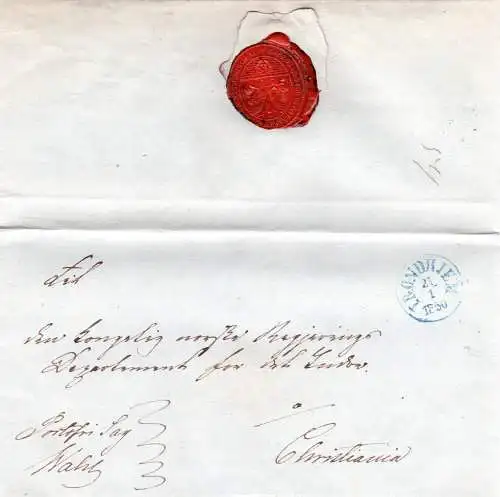 Til
TRONDHJEM
21
1
1850
den Kongelig norske Regjerings
Departement for det Indre.
Portofri Sag
Wahl
Christiania